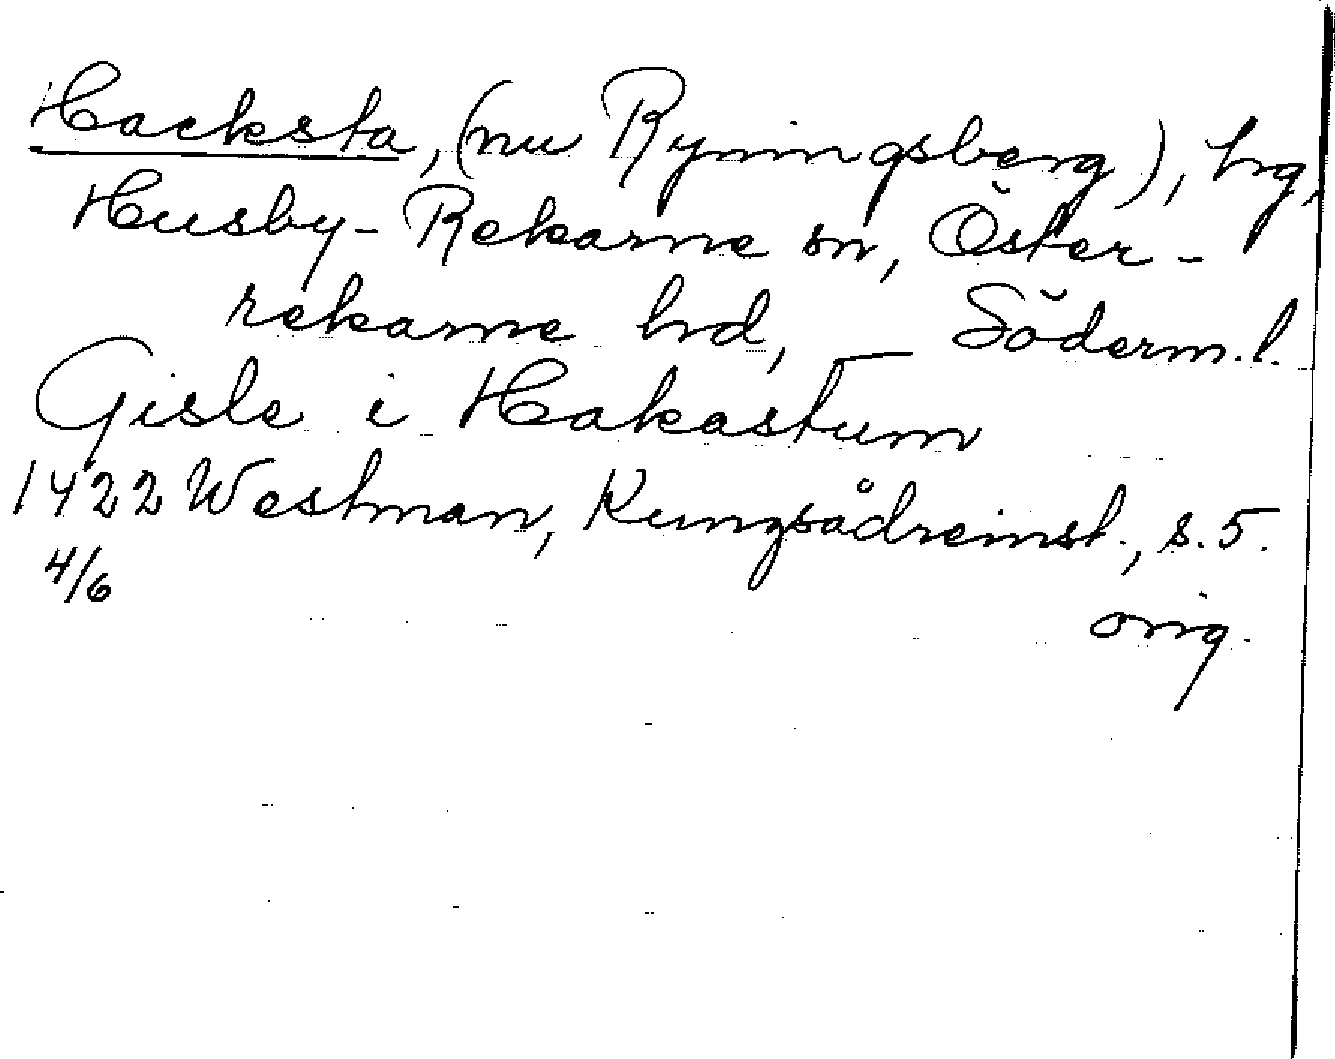 Hacksta, (nu Rynningsberg), hrg,
Husby-Rekarne sn, Öster-
rekarne hrd, Söderm.l.
Gisle i Hakastum
1422 Westman, Kungsådreinst., s.5.
4/6
orig.